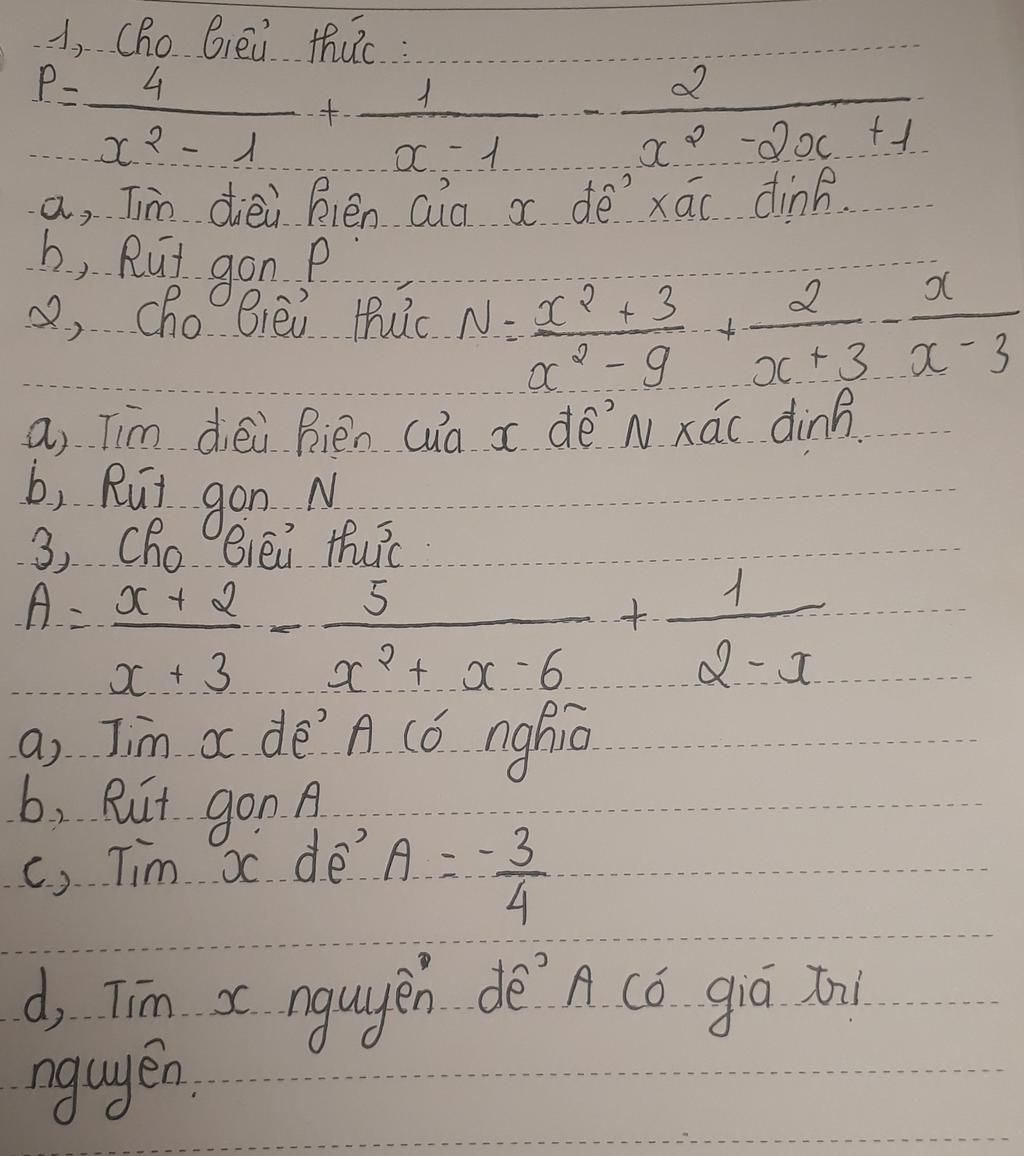 1, Cho biểu thức :
P = 4/(x² - 1) + 1/(x - 1) - 2/(x² - 2x + 1)
a, Tìm điều kiện của x để xác định.
b, Rút gọn P
2, Cho biểu thức N = (x² + 3)/(x² - 9) + 2/(x + 3) - x/(x - 3)
a, Tìm điều kiện của x để N xác định.
b, Rút gọn N
3, Cho biểu thức :
A = (x + 2)/(x + 3) - 5/(x² + x - 6) + 1/(2 - x)
a, Tìm x để A có nghĩa
b, Rút gọn A
c, Tìm x để A = -3/4
d, Tìm x nguyển để A có giá trị
nguyên.